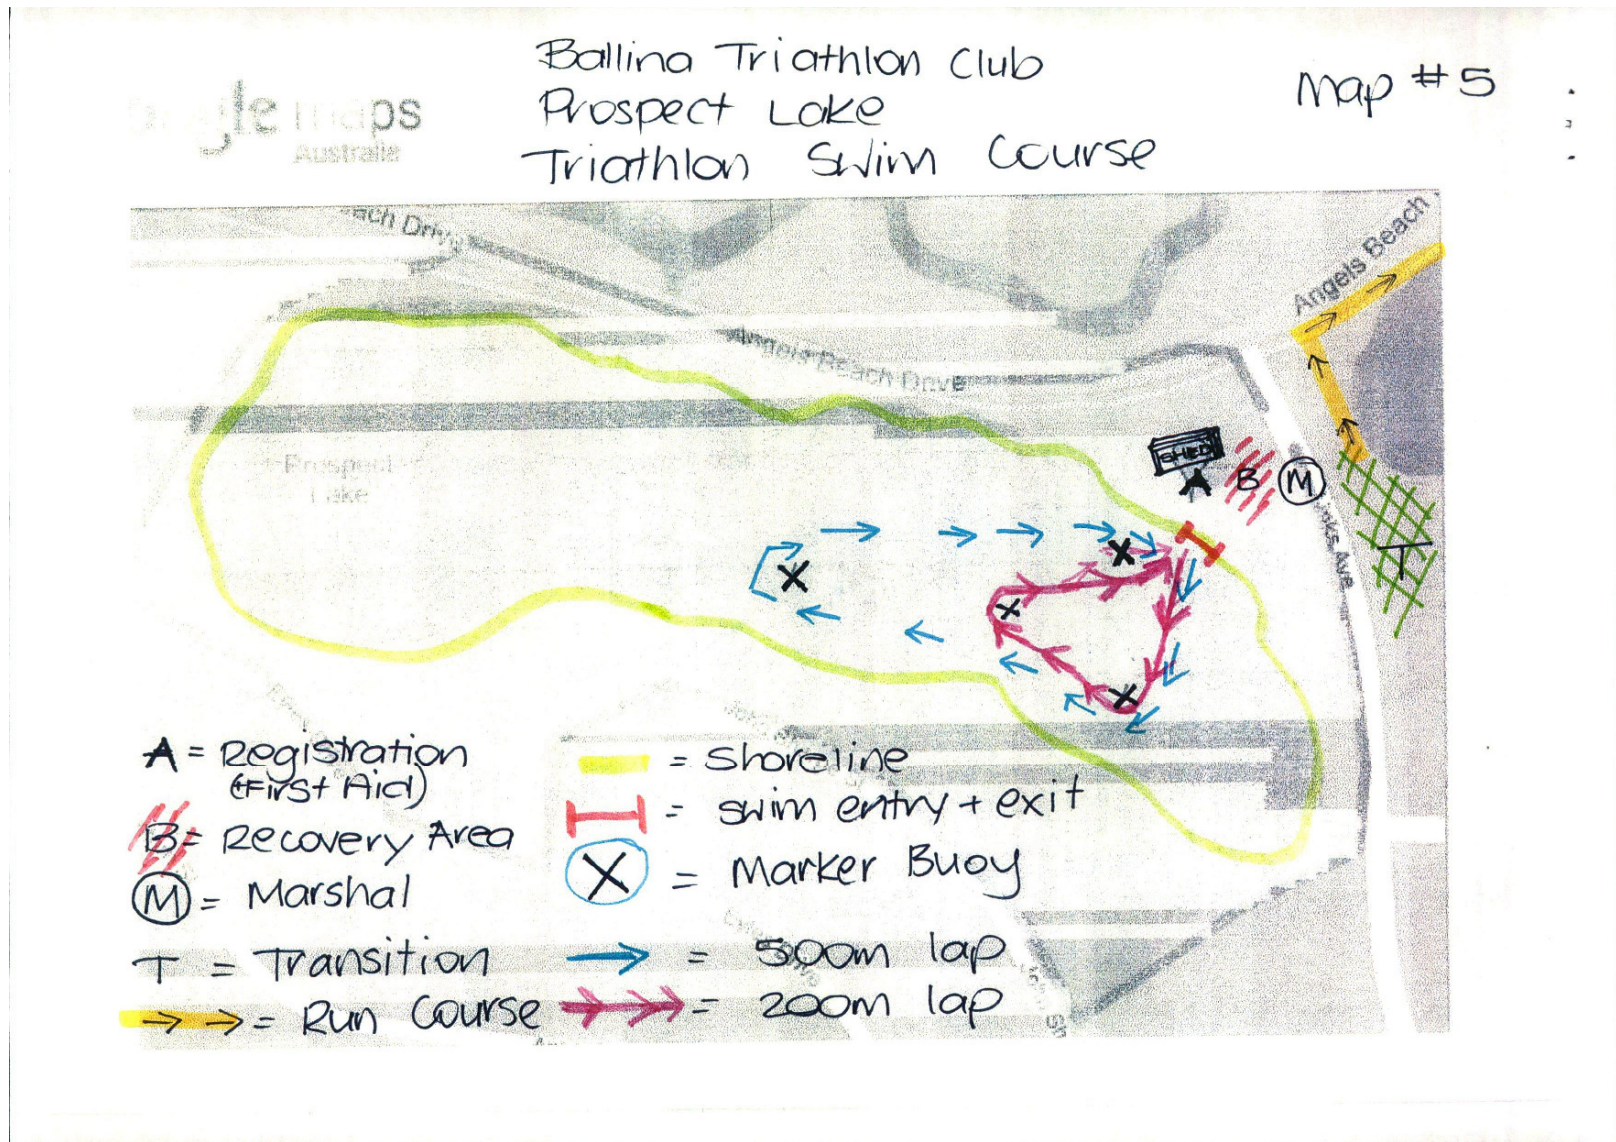 Ballina Triathlon Club
Prospect Lake
Triathlon Swim Course
Map #5
gle maps
Australia
ach Drive
Angels Beach
Angels Beach Drive
Prospect
Lake
SHED
A
B
M
T
Ave
A = Registration
(First Aid)
B = Recovery Area
M = Marshal
T = Transition
→ → = Run Course
= Shoreline
= Swim entry + exit
X = Marker Buoy
→ = 500m lap
= 200m lap